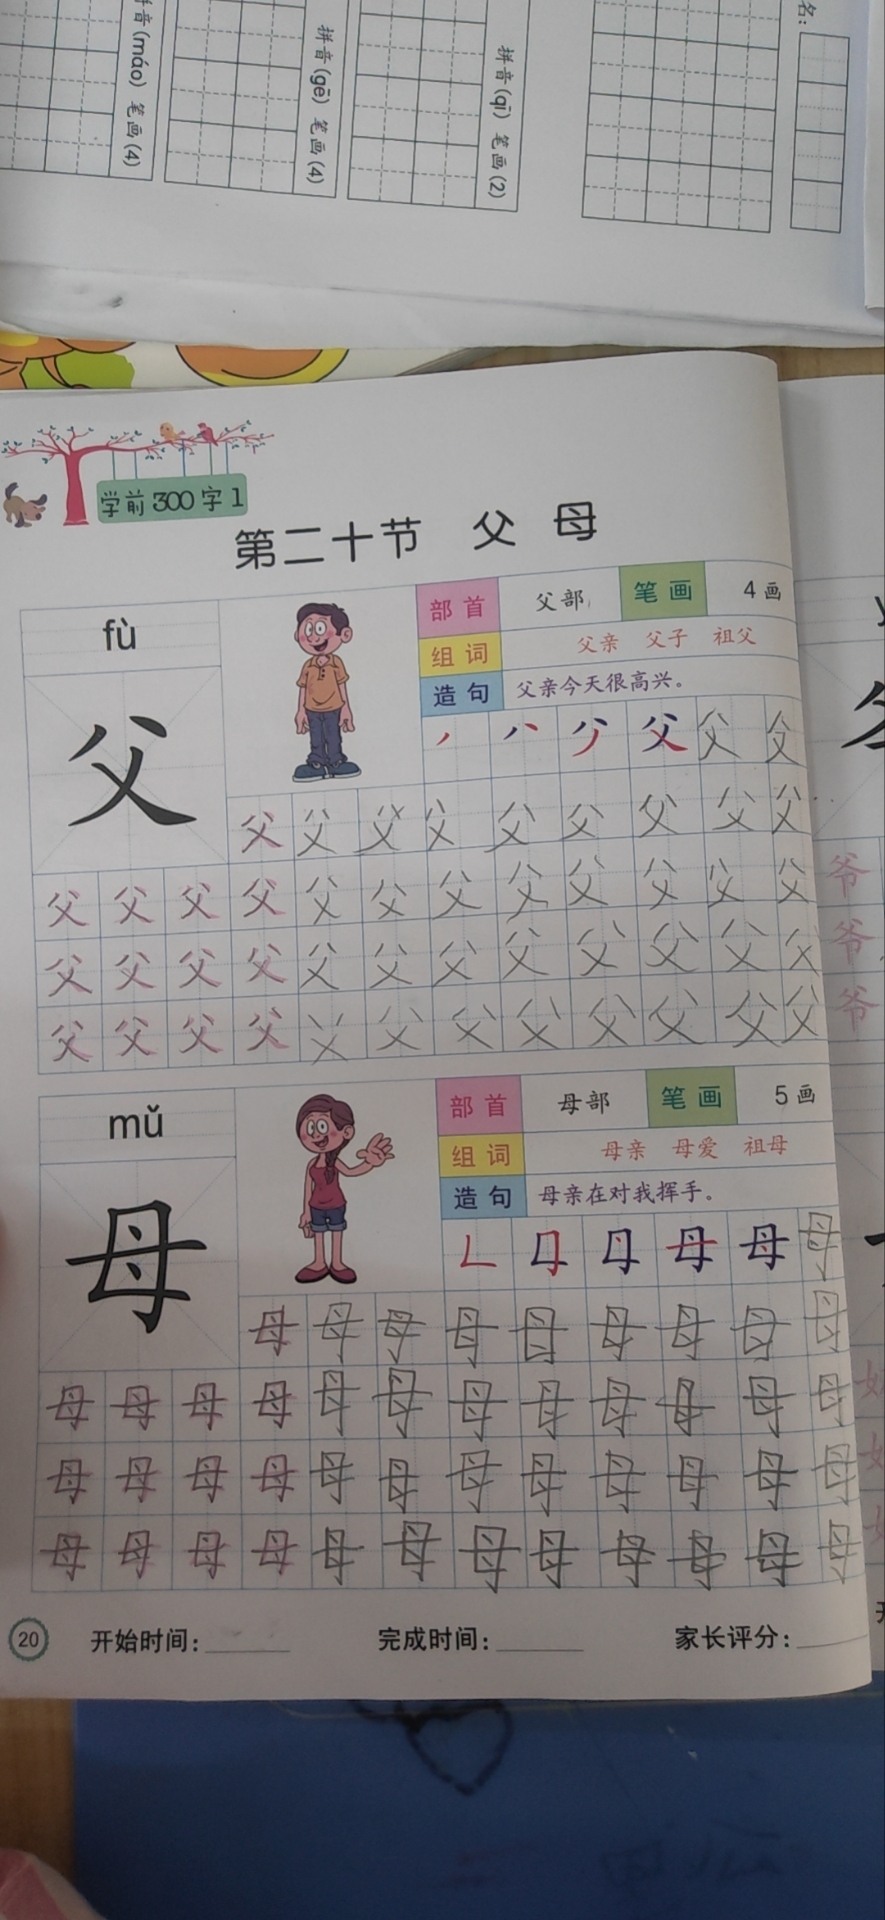 名：
拼音(qī) 笔画(2)
拼音(gē) 笔画(4)
拼音(máo) 笔画(4)
学前300字1
第二十节 父 母
fù
父
部首 父部 笔画 4画
组词 父亲 父子 祖父
造句 父亲今天很高兴。
父 父 父
父 父 父 父 父 父 父 父 父
父 父 父 父 父 父 父 父 父 父 父 父
父 父 父 父 父 父 父 父 父 父 父 父
父 父 父 父 父 父 父 父 父 父 父 父
mǔ
母
部首 母部 笔画 5画
组词 母亲 母爱 祖母
造句 母亲在对我挥手。
母 母 母
母 母 母 母 母 母 母 母 母
母 母 母 母 母 母 母 母 母 母 母 母
母 母 母 母 母 母 母 母 母 母 母 母
母 母 母 母 母 母 母 母 母 母 母 母
20 开始时间： 完成时间： 家长评分：
爷
爷
爷